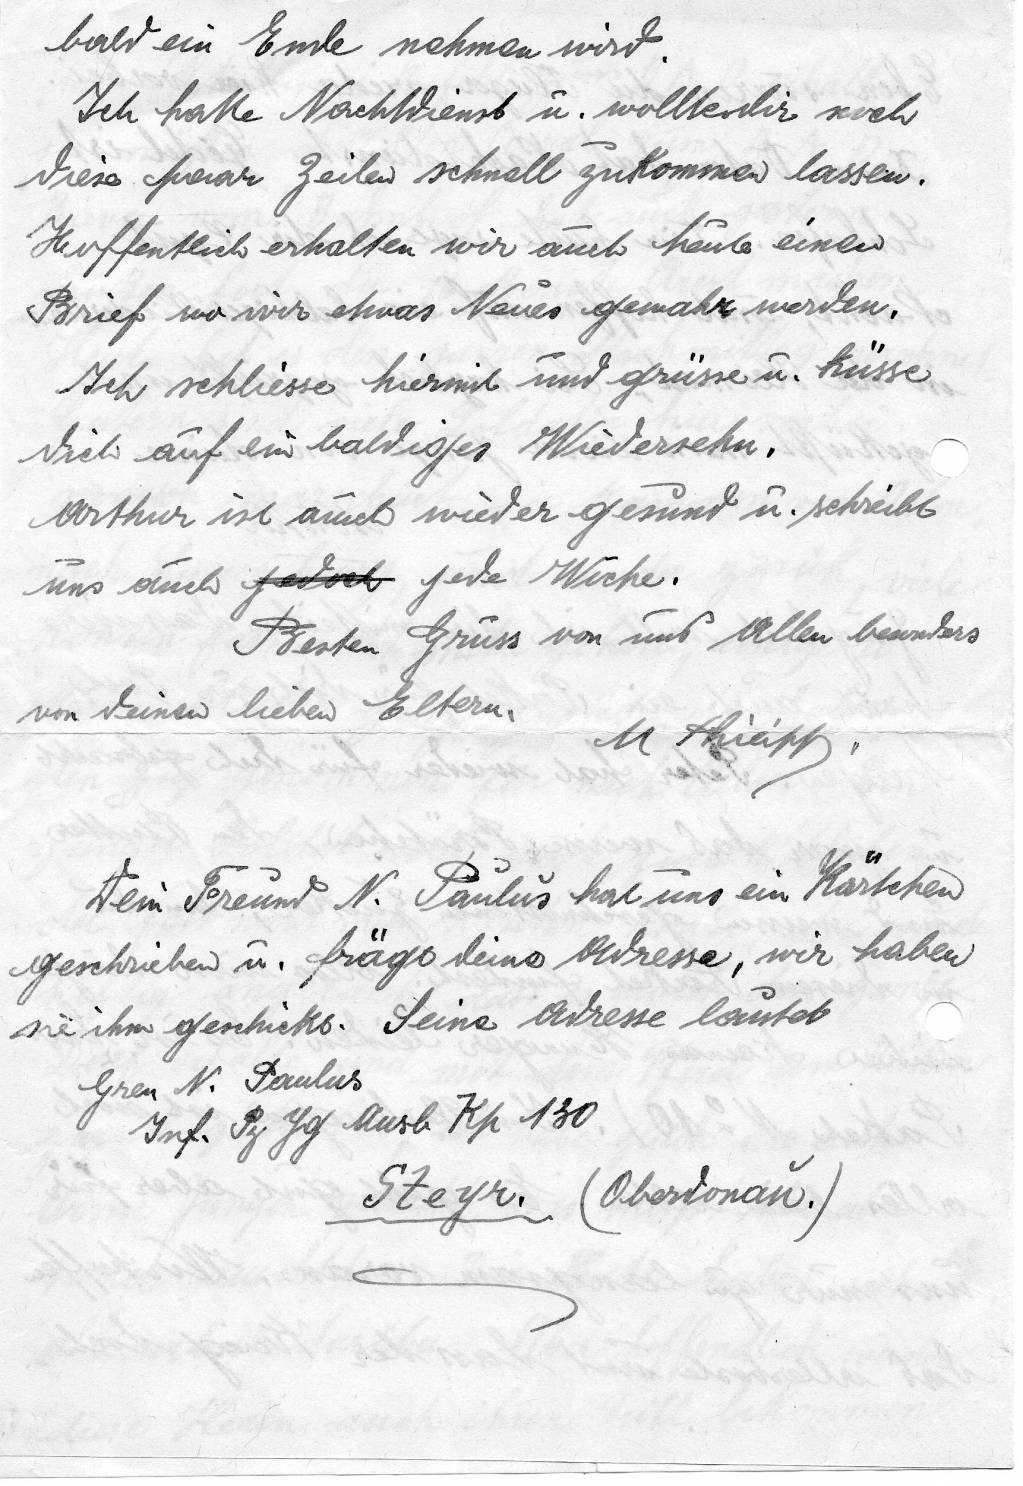 bald ein Ende nehmen wird.
Ich hatte Nachtdienst u. wollte dir noch
diese paar Zeilen schnell zukommen lassen.
Hoffentlich erhalten wir auch heute einen
Brief wo wir etwas Neues gewahr werden.
Ich schliesse hiermit und grüsse u. küsse
dich auf ein baldiges Wiedersehn.
Arthur ist auch wieder gesund u. schreibt
uns auch jedoch jede Woche.
Besten Gruss von uns Allen besonders
von deinen lieben Eltern.
M
Dein Freund N. Paulus hat uns ein Kärtchen
geschrieben u. frägt deine Adresse, wir haben
sie ihm geschickt. Seine Adresse lautet
Gren N. Paulus
Inf. Pz Jg Ausb Kp 130
Steyr. (Oberdonau.)